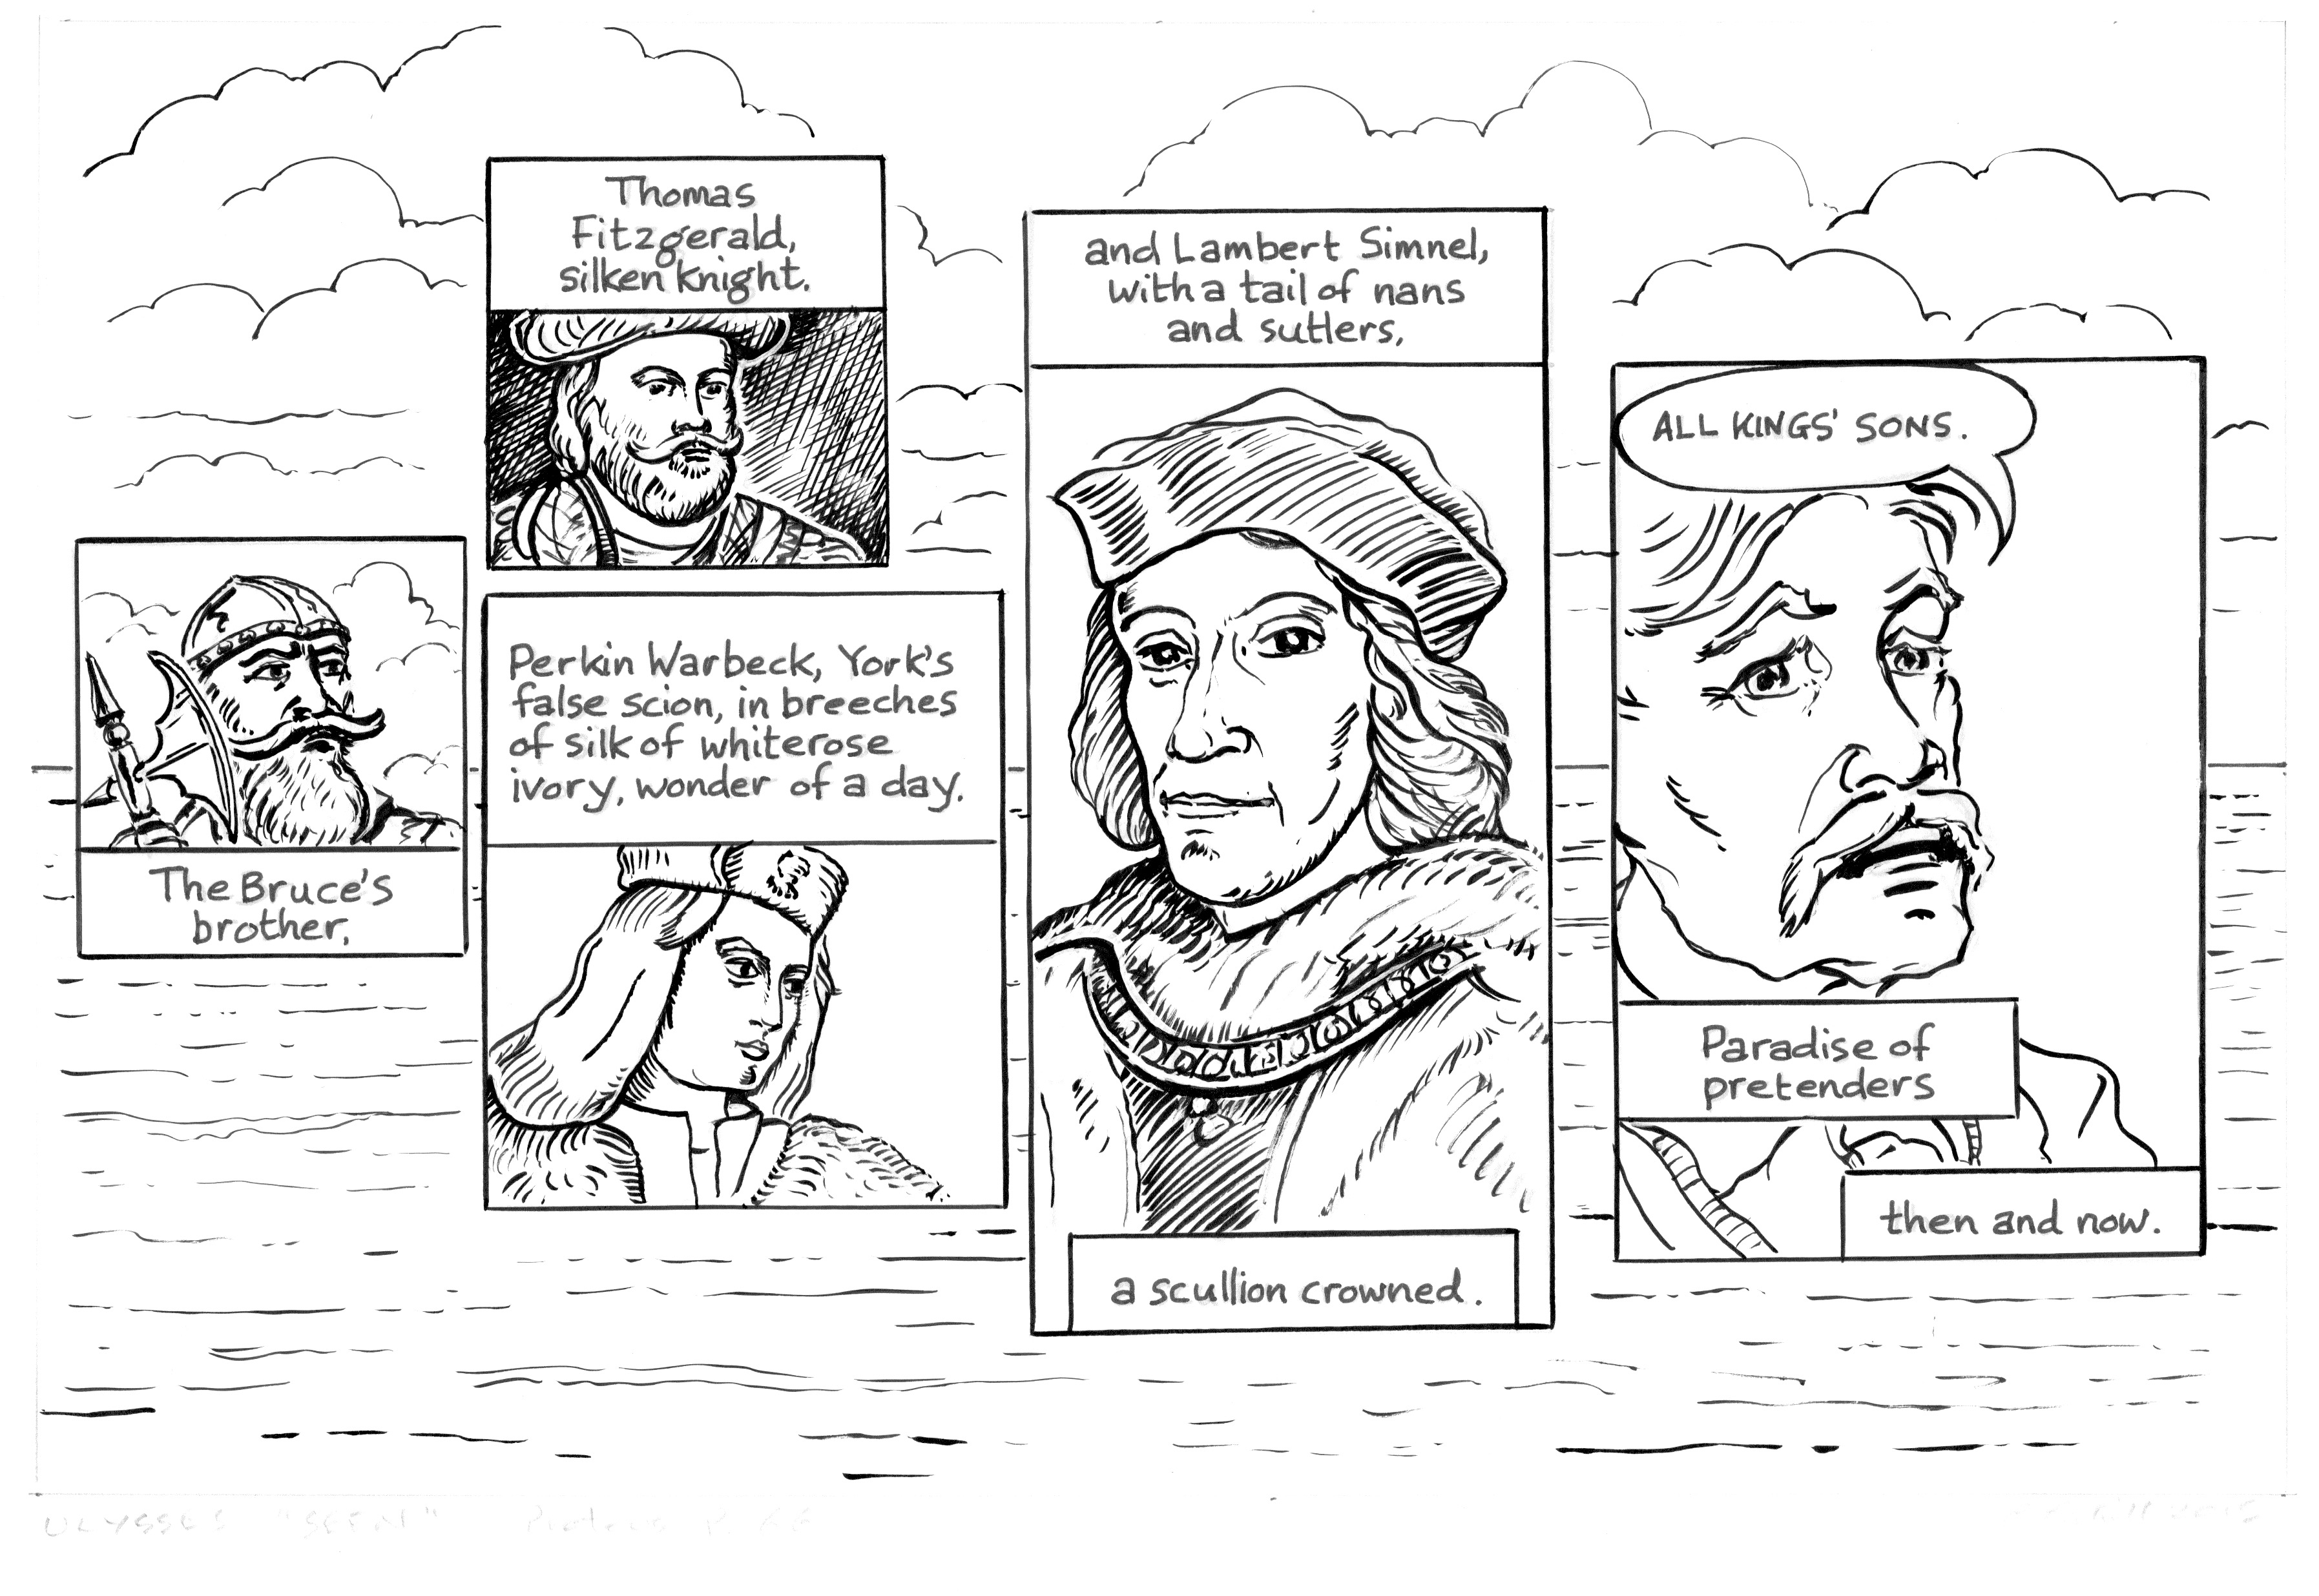 The Bruce's
brother,
Thomas
Fitzgerald,
silken knight.
Perkin Warbeck, York's
false scion, in breeches
of silk of whiterose
ivory, wonder of a day.
and Lambert Simnel,
with a tail of nans
and sutlers,
a scullion crowned.
ALL KINGS' SONS.
Paradise of
pretenders
then and now.
ULYSSES "SEEN" Proteus P. 66